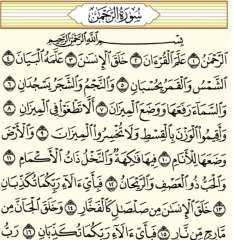 سُورَةُ الرَّحْمَٰن
بِسْمِ اللَّهِ الرَّحْمَٰنِ الرَّحِيمِ
الرَّحْمَٰنُ ١ عَلَّمَ الْقُرْءَانَ ٢ خَلَقَ الْإِنسَٰنَ ٣ عَلَّمَهُ الْبَيَانَ ٤
الشَّمْسُ وَالْقَمَرُ بِحُسْبَانٍ ٥ وَالنَّجْمُ وَالشَّجَرُ يَسْجُدَانِ ٦
وَالسَّمَاءَ رَفَعَهَا وَوَضَعَ الْمِيزَانَ ٧ أَلَّا تَطْغَوْا فِي الْمِيزَانِ ٨
وَأَقِيمُوا الْوَزْنَ بِالْقِسْطِ وَلَا تُخْسِرُوا الْمِيزَانَ ٩ وَالْأَرْضَ
وَضَعَهَا لِلْأَنَامِ ١٠ فِيهَا فَٰكِهَةٌ وَالنَّخْلُ ذَاتُ الْأَكْمَامِ ١١
وَالْحَبُّ ذُو الْعَصْفِ وَالرَّيْحَانُ ١٢ فَبِأَيِّ ءَالَاءِ رَبِّكُمَا تُكَذِّبَانِ
١٣ خَلَقَ الْإِنسَٰنَ مِن صَلْصَٰلٍ كَالْفَخَّارِ ١٤ وَخَلَقَ الْجَانَّ مِن
مَّارِجٍ مِّن نَّارٍ ١٥ فَبِأَيِّ ءَالَاءِ رَبِّكُمَا تُكَذِّبَانِ ١٦ رَبُّ